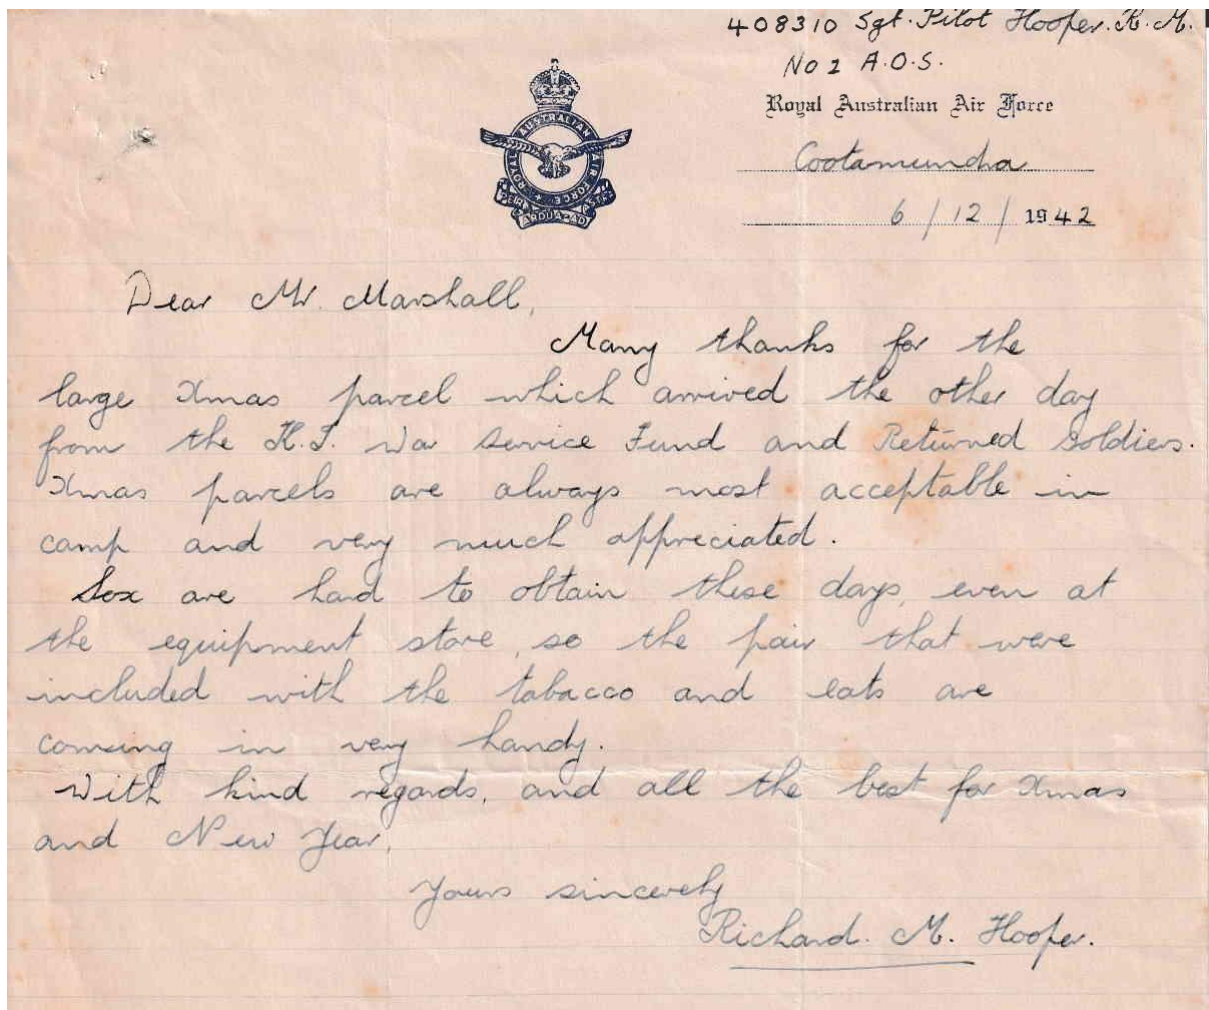 408310 Sgt. Pilot Hooper. R. M.
No 1 A.O.S.
Royal Australian Air Force
Cootamundra
6 / 12 / 1942
ROYAL AUSTRALIAN AIR FORCE
PER ARDUA AD ASTRA
Dear Mr. Marshall,
Many thanks for the
large Xmas parcel which arrived the other day
from the K.I. War Service Fund and Returned Soldiers.
Xmas parcels are always most acceptable in
camp and very much appreciated.
Sox are hard to obtain these days, even at
the equipment store, so the pair that were
included with the tobacco and eats are
coming in very handy.
With kind regards, and all the best for Xmas
and New Year,
Yours sincerely
Richard. M. Hooper.